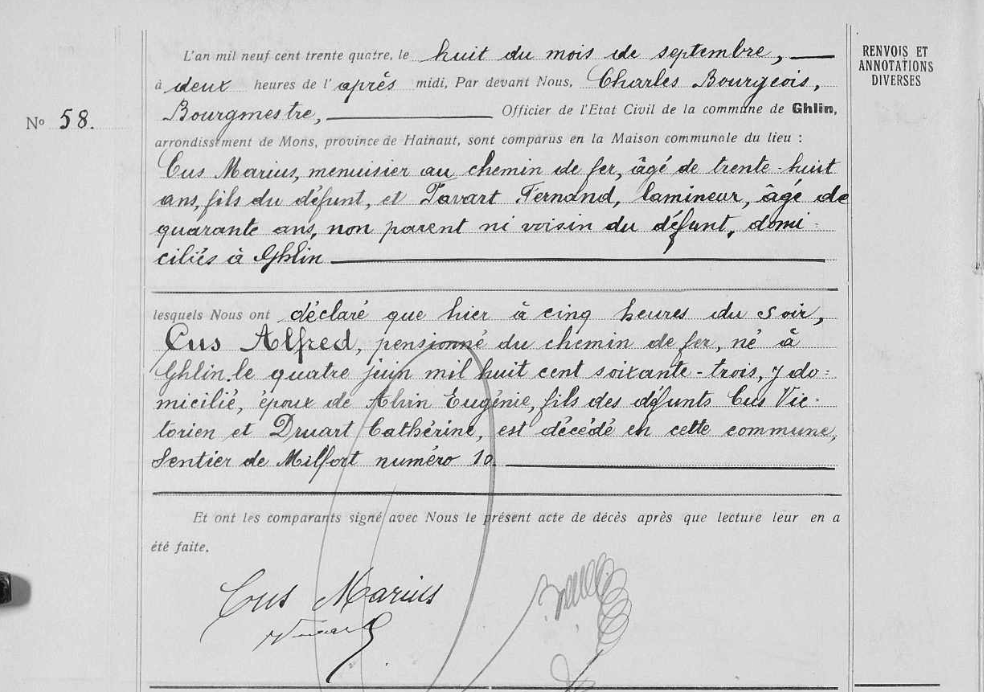 L'an mil neuf cent trente quatre, le huit du mois de septembre,
à deux heures de l'après midi, Par devant Nous, Charles Bourgeois,
Bourgmestre, Officier de l'Etat Civil de la commune de Ghlin,
arrondissement de Mons, province de Hainaut, sont comparus en la Maison communale du lieu :
Cus Marius, menuisier au chemin de fer, âgé de trente-huit
ans, fils du défunt, et Tavart Fernand, lamineur, âgé de
quarante ans, non parent ni voisin du défunt, domi-
ciliés à Ghlin
lesquels Nous ont déclaré que hier à cinq heures du soir,
Cus Alfred, pensionné du chemin de fer, né à
Ghlin, le quatre juin mil huit cent soixante-trois, y do=
micilié, époux de Alvin Eugénie, fils des défunts Cus Vic-
torien et Druart Cathérine, est décédé en cette commune,
Sentier de Milfort numéro 10.
Et ont les comparants signé avec Nous le présent acte de décès après que lecture leur en a
été faite.
Cus Marius
RENVOIS ET
ANNOTATIONS
DIVERSES
No 58.